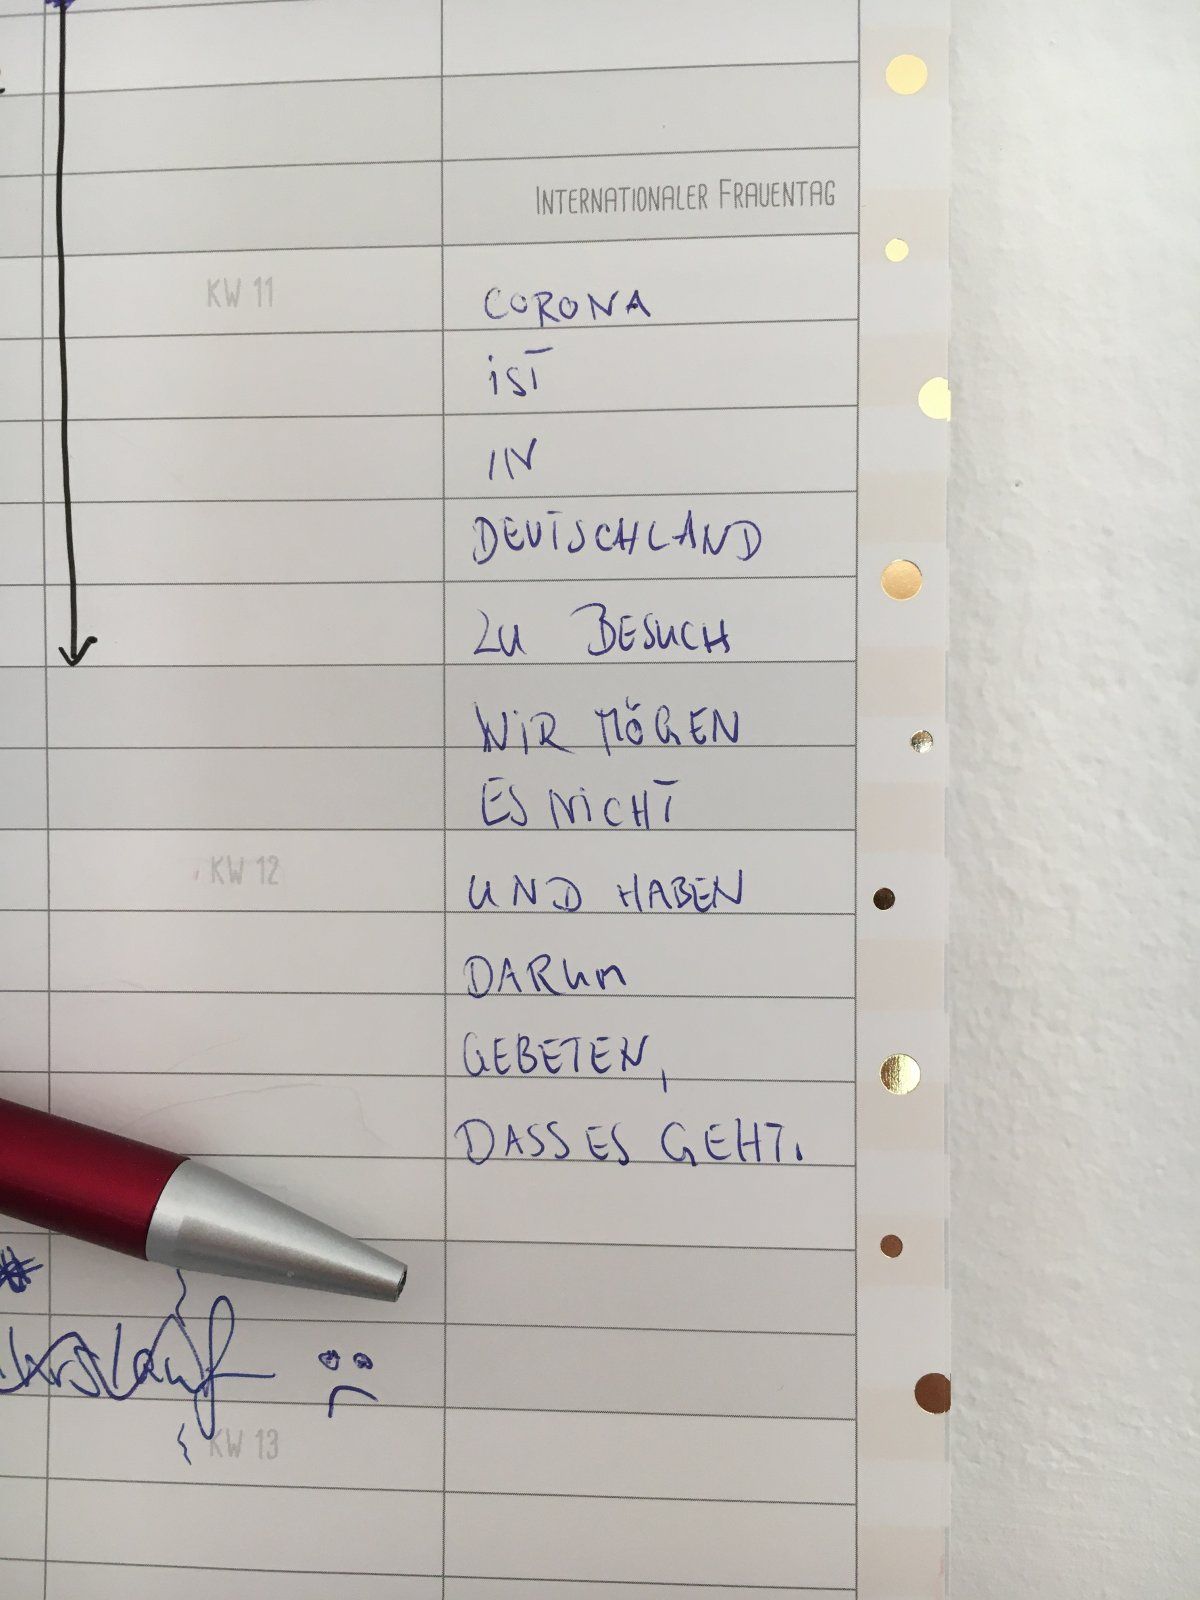 INTERNATIONALER FRAUENTAG
KW 11
CORONA
iST
IN
DEUTSCHLAND
ZU BESUCH
WiR MÖGEN
ES NiCHT
KW 12
UND HABEN
DARUM
GEBETEN,
DASS ES GEHT.
KW 13